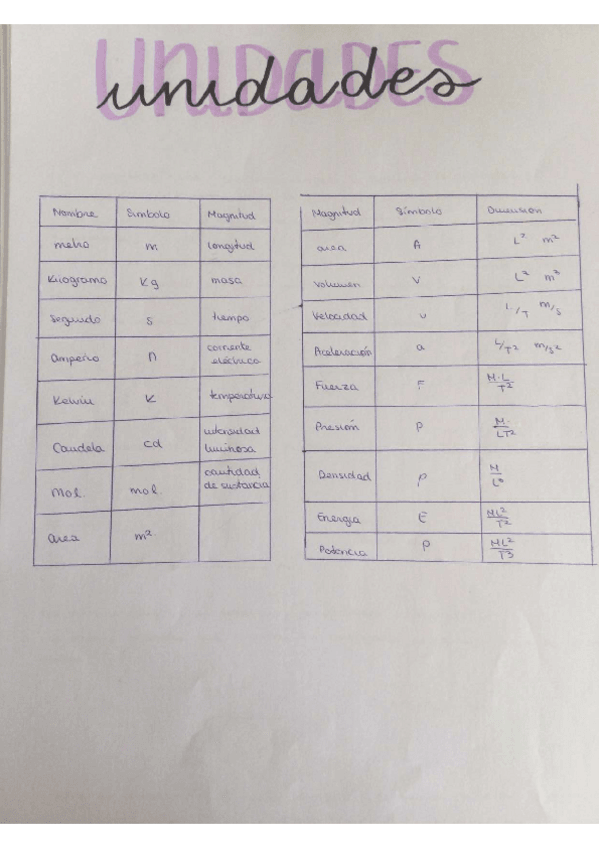 UNIDADES
unidades
Nombre Simbolo Magnitud
metro m longitud
Kilogramo Kg masa
Segundo s tiempo
Amperio A corriente eléctrica
Kelvin K temperatura
Candela cd intensidad luminosa
Mol mol cantidad de sustancia
area m²
Magnitud Símbolo Dimensión
area A L² m²
Volumen V
Velocidad v L/T m/s
Aceleración a L/T² m/s²
Fuerza F M·L/T²
Presión P M/LT²
Densidad ρ
Energia E ML²/T²
Potencia P ML²/T3